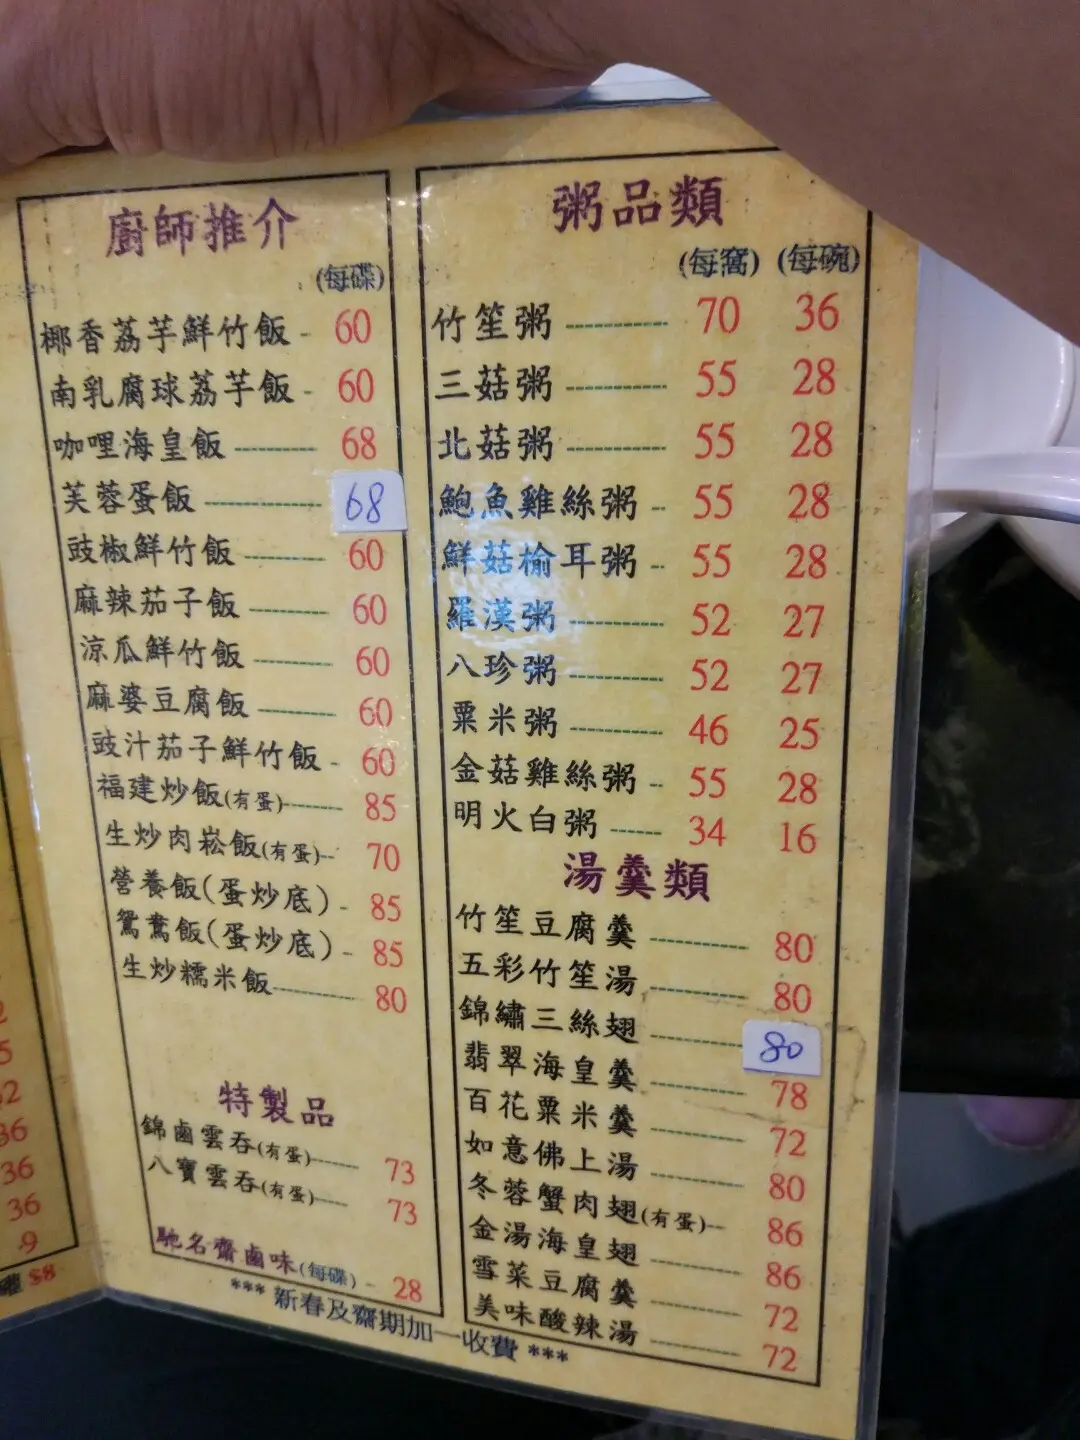 廚師推介
(每碟)
椰香荔芋鮮竹飯 60
南乳腐球荔芋飯 60
咖哩海皇飯 68
芙蓉蛋飯 68
豉椒鮮竹飯 60
麻辣茄子飯 60
涼瓜鮮竹飯 60
麻婆豆腐飯 60
豉汁茄子鮮竹飯 60
福建炒飯(有蛋) 85
生炒肉崧飯(有蛋) 70
營養飯(蛋炒底) 85
鴛鴦飯(蛋炒底) 85
生炒糯米飯 80
特製品
錦鹵雲吞(有蛋) 73
八寶雲吞(有蛋) 73
馳名齋鹵味(每碟) 28
粥品類
(每窩) (每碗)
竹笙粥 70 36
三菇粥 55 28
北菇粥 55 28
鮑魚雞絲粥 55 28
鮮菇榆耳粥 55 28
羅漢粥 52 27
八珍粥 52 27
粟米粥 46 25
金菇雞絲粥 55 28
明火白粥 34 16
湯羹類
竹笙豆腐羹 80
五彩竹笙湯 80
錦繡三絲翅 80
翡翠海皇羹 78
百花粟米羹 72
如意佛上湯 80
冬蓉蟹肉翅(有蛋) 86
金湯海皇翅 86
雪菜豆腐羹 72
美味酸辣湯 72
*** 新春及齋期加一收費 ***
36
36
36
$8